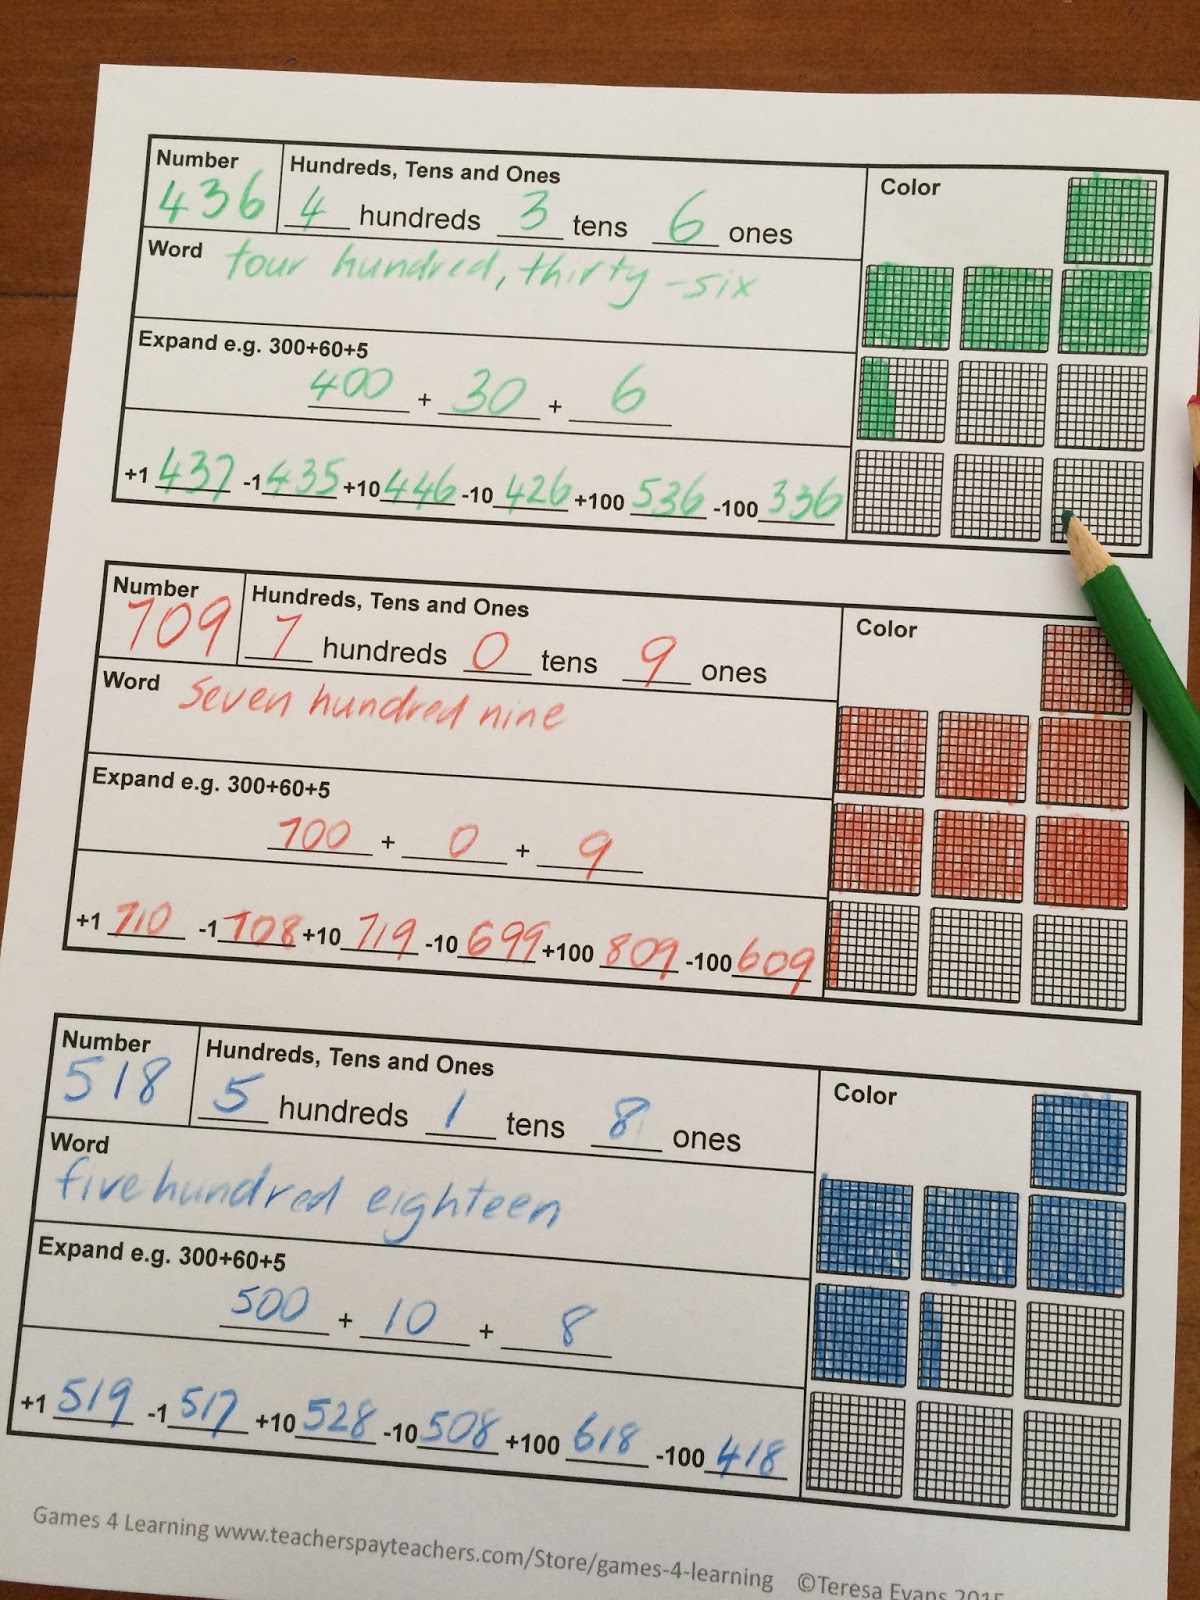 Number
436
Hundreds, Tens and Ones
4 hundreds 3 tens 6 ones
Color
Word four hundred, thirty-six
Expand e.g. 300+60+5
400 + 30 + 6
+1 437 -1 435 +10 446 -10 426 +100 536 -100 336
Number
709
Hundreds, Tens and Ones
7 hundreds 0 tens 9 ones
Color
Word seven hundred nine
Expand e.g. 300+60+5
700 + 0 + 9
+1 710 -1 708 +10 719 -10 699 +100 809 -100 609
Number
518
Hundreds, Tens and Ones
5 hundreds 1 tens 8 ones
Color
Word
five hundred eighteen
Expand e.g. 300+60+5
500 + 10 + 8
+1 519 -1 517 +10 528 -10 508 +100 618 -100 418
Games 4 Learning www.teacherspayteachers.com/Store/games-4-learning ©Teresa Evans 2015